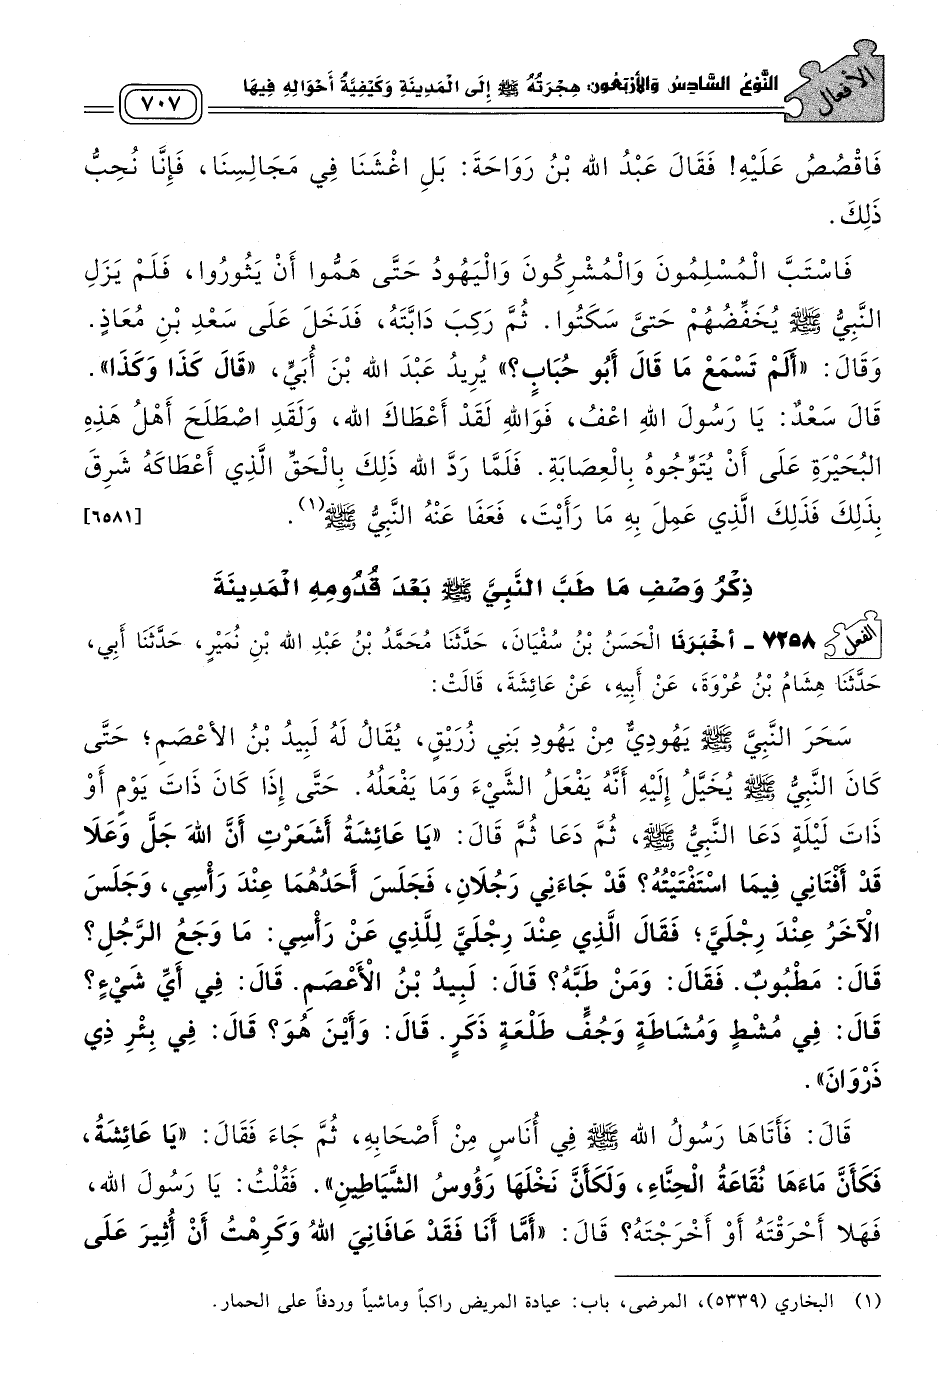 الأفعال
النَّوْعُ السَّادِسُ وَالأَرْبَعُونَ: هِجْرَتُهُ ﷺ إِلَى الْمَدِينَةِ وَكَيْفِيَّةُ أَحْوَالِهِ فِيهَا
٧٠٧
فَاقْصُصْ عَلَيْهِ! فَقَالَ عَبْدُ الله بْنُ رَوَاحَةَ: بَلِ اغْشَنَا فِي مَجَالِسِنَا، فَإِنَّا نُحِبُّ
ذَلِكَ.
فَاسْتَبَّ الْمُسْلِمُونَ وَالْمُشْرِكُونَ وَالْيَهُودُ حَتَّى هَمُّوا أَنْ يَثُورُوا، فَلَمْ يَزَلِ
النَّبِيُّ ﷺ يُخَفِّضُهُمْ حَتىَّ سَكَتُوا. ثُمَّ رَكِبَ دَابَّتَهُ، فَدَخَلَ عَلَى سَعْدِ بْنِ مُعَاذٍ.
وَقَالَ: «أَلَمْ تَسْمَعْ مَا قَالَ أَبُو حُبَابٍ؟» يُرِيدُ عَبْدَ الله بْنَ أُبَيٍّ، «قَالَ كَذَا وَكَذَا».
قَالَ سَعْدٌ: يَا رَسُولَ اللهِ اعْفُ، فَوَاللهِ لَقَدْ أَعْطَاكَ الله، وَلَقَدِ اصْطَلَحَ أَهْلُ هَذِهِ
البُحَيْرَةِ عَلَى أَنْ يُتَوِّجُوهُ بِالْعِصَابَةِ. فَلَمَّا رَدَّ الله ذَلِكَ بِالْحَقِّ الَّذِي أَعْطَاكَهُ شَرِقَ
بِذَلِكَ فَذَلِكَ الَّذِي عَمِلَ بِهِ مَا رَأَيْتَ، فَعَفَا عَنْهُ النَّبِيُّ ﷺ(١). [٦٥٨١]
ذِكْرُ وَصْفِ مَا طَبَّ النَّبِيَّ ﷺ بَعْدَ قُدُومِهِ الْمَدِينَةَ
الفعل ٧٢٥٨ - أَخْبَرَنَا الْحَسَنُ بْنُ سُفْيَانَ، حَدَّثَنَا مُحَمَّدُ بْنُ عَبْدِ الله بْنِ نُمَيْرٍ، حَدَّثَنَا أَبِي،
حَدَّثَنَا هِشَامُ بْنُ عُرْوَةَ، عَنْ أَبِيهِ، عَنْ عَائِشَةَ، قَالَتْ:
سَحَرَ النَّبِيَّ ﷺ يَهُودِيٌّ مِنْ يَهُودِ بَنِي زُرَيْقٍ، يُقَالُ لَهُ لَبِيدُ بْنُ الأعْصَمِ؛ حَتَّى
كَانَ النَّبِيُّ ﷺ يُخَيَّلُ إِلَيْهِ أَنَّهُ يَفْعَلُ الشَّيْءَ وَمَا يَفْعَلُهُ. حَتَّى إِذَا كَانَ ذَاتَ يَوْمٍ أَوْ
ذَاتَ لَيْلَةٍ دَعَا النَّبِيُّ ﷺ، ثُمَّ دَعَا ثُمَّ قَالَ: «يَا عَائِشَةُ أَشَعَرْتِ أَنَّ اللهَ جَلَّ وَعَلَا
قَدْ أَفْتَانِي فِيمَا اسْتَفْتَيْتُهُ؟ قَدْ جَاءَنِي رَجُلَانِ، فَجَلَسَ أَحَدُهُمَا عِنْدَ رَأْسِي، وَجَلَسَ
الْآخَرُ عِنْدَ رِجْلَيَّ؛ فَقَالَ الَّذِي عِنْدَ رِجْلَيَّ لِلَّذِي عَنْ رَأْسِي: مَا وَجَعُ الرَّجُلِ؟
قَالَ: مَطْبُوبٌ. فَقَالَ: وَمَنْ طَبَّهُ؟ قَالَ: لَبِيدُ بْنُ الْأَعْصَمِ. قَالَ: فِي أَيِّ شَيْءٍ؟
قَالَ: فِي مُشْطٍ وَمُشَاطَةٍ وَجُفِّ طَلْعَةٍ ذَكَرٍ. قَالَ: وَأَيْنَ هُوَ؟ قَالَ: فِي بِئْرِ ذِي
ذَرْوَانَ».
قَالَ: فَأَتَاهَا رَسُولُ الله ﷺ فِي أُنَاسٍ مِنْ أَصْحَابِهِ، ثُمَّ جَاءَ فَقَالَ: «يَا عَائِشَةُ،
فَكَأَنَّ مَاءَهَا نُقَاعَةُ الْحِنَّاءِ، وَلَكَأَنَّ نَخْلَهَا رَؤُوسُ الشَّيَاطِينِ». فَقُلْتُ: يَا رَسُولَ الله،
فَهَلا أَحْرَقْتَهُ أَوْ أَخْرَجْتَهُ؟ قَالَ: «أَمَّا أَنَا فَقَدْ عَافَانِيَ اللهُ وَكَرِهْتُ أَنْ أُثِيرَ عَلَى
(١) البخاري (٥٣٣٩)، المرضى، باب: عيادة المريض راكباً وماشياً وردفاً على الحمار.